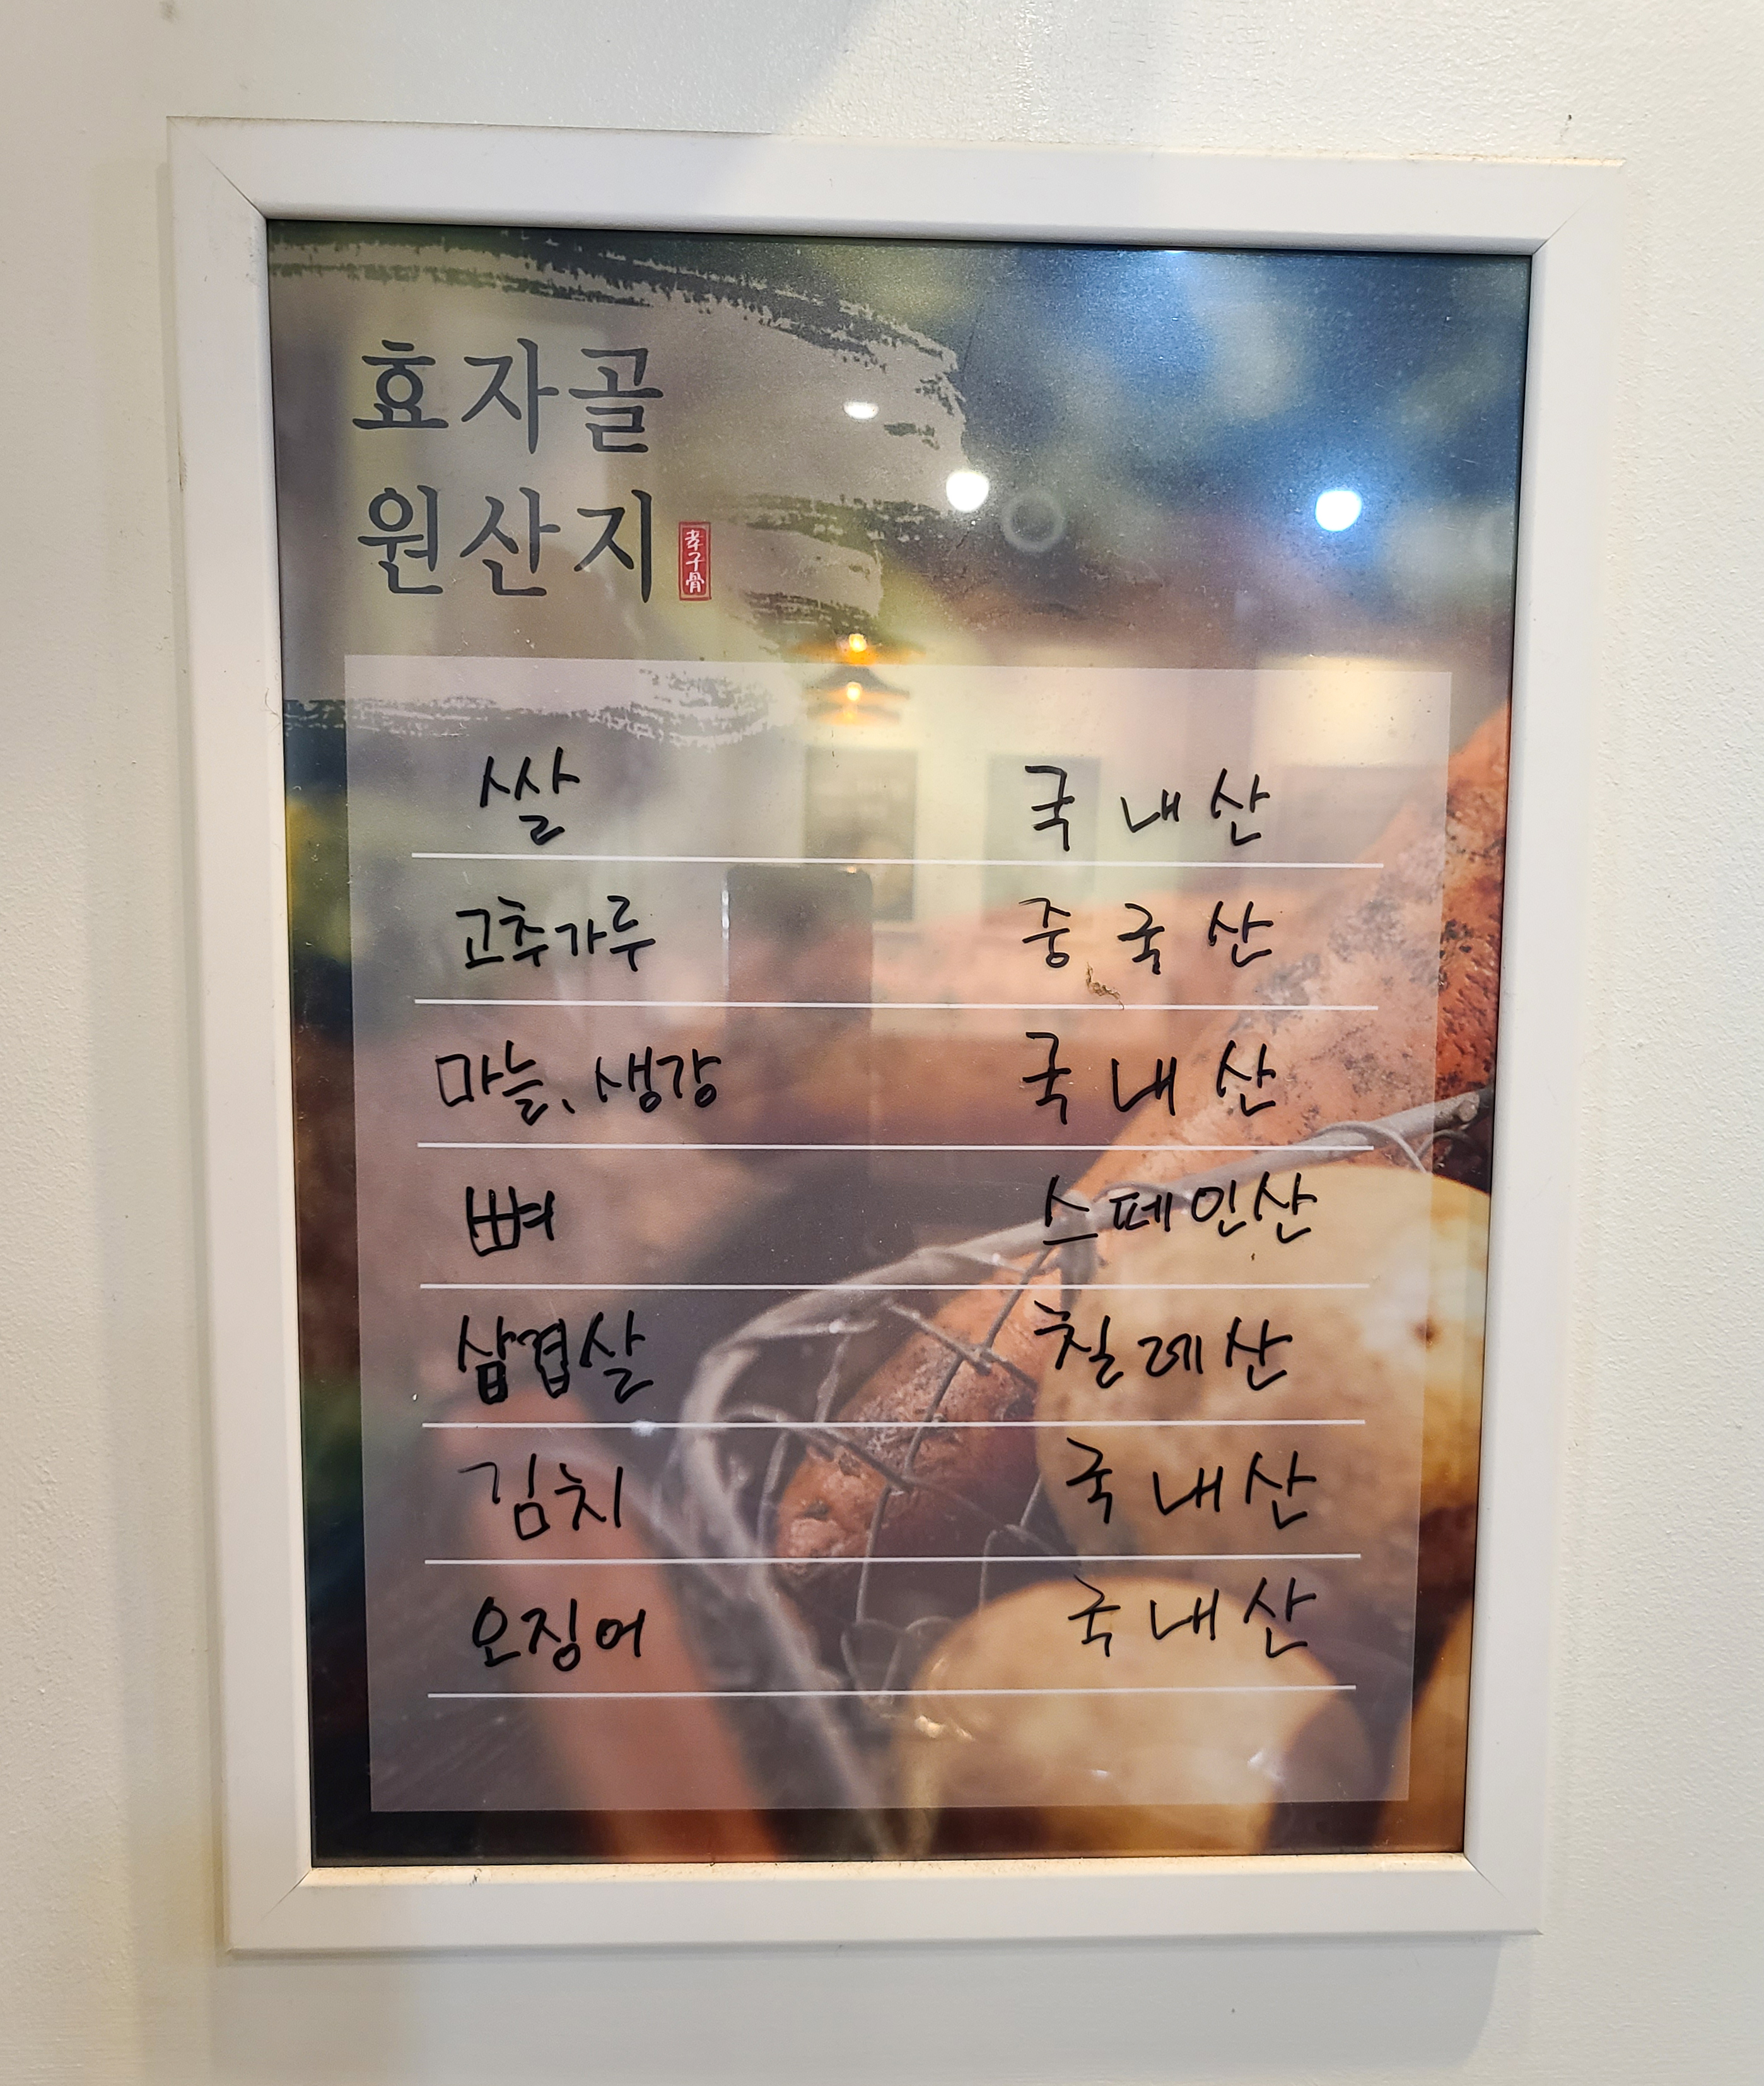 효자골
원산지
孝子骨
쌀 국내산
고추가루 중국산
마늘, 생강 국내산
뼈 스페인산
삼겹살 칠레산
김치 국내산
오징어 국내산